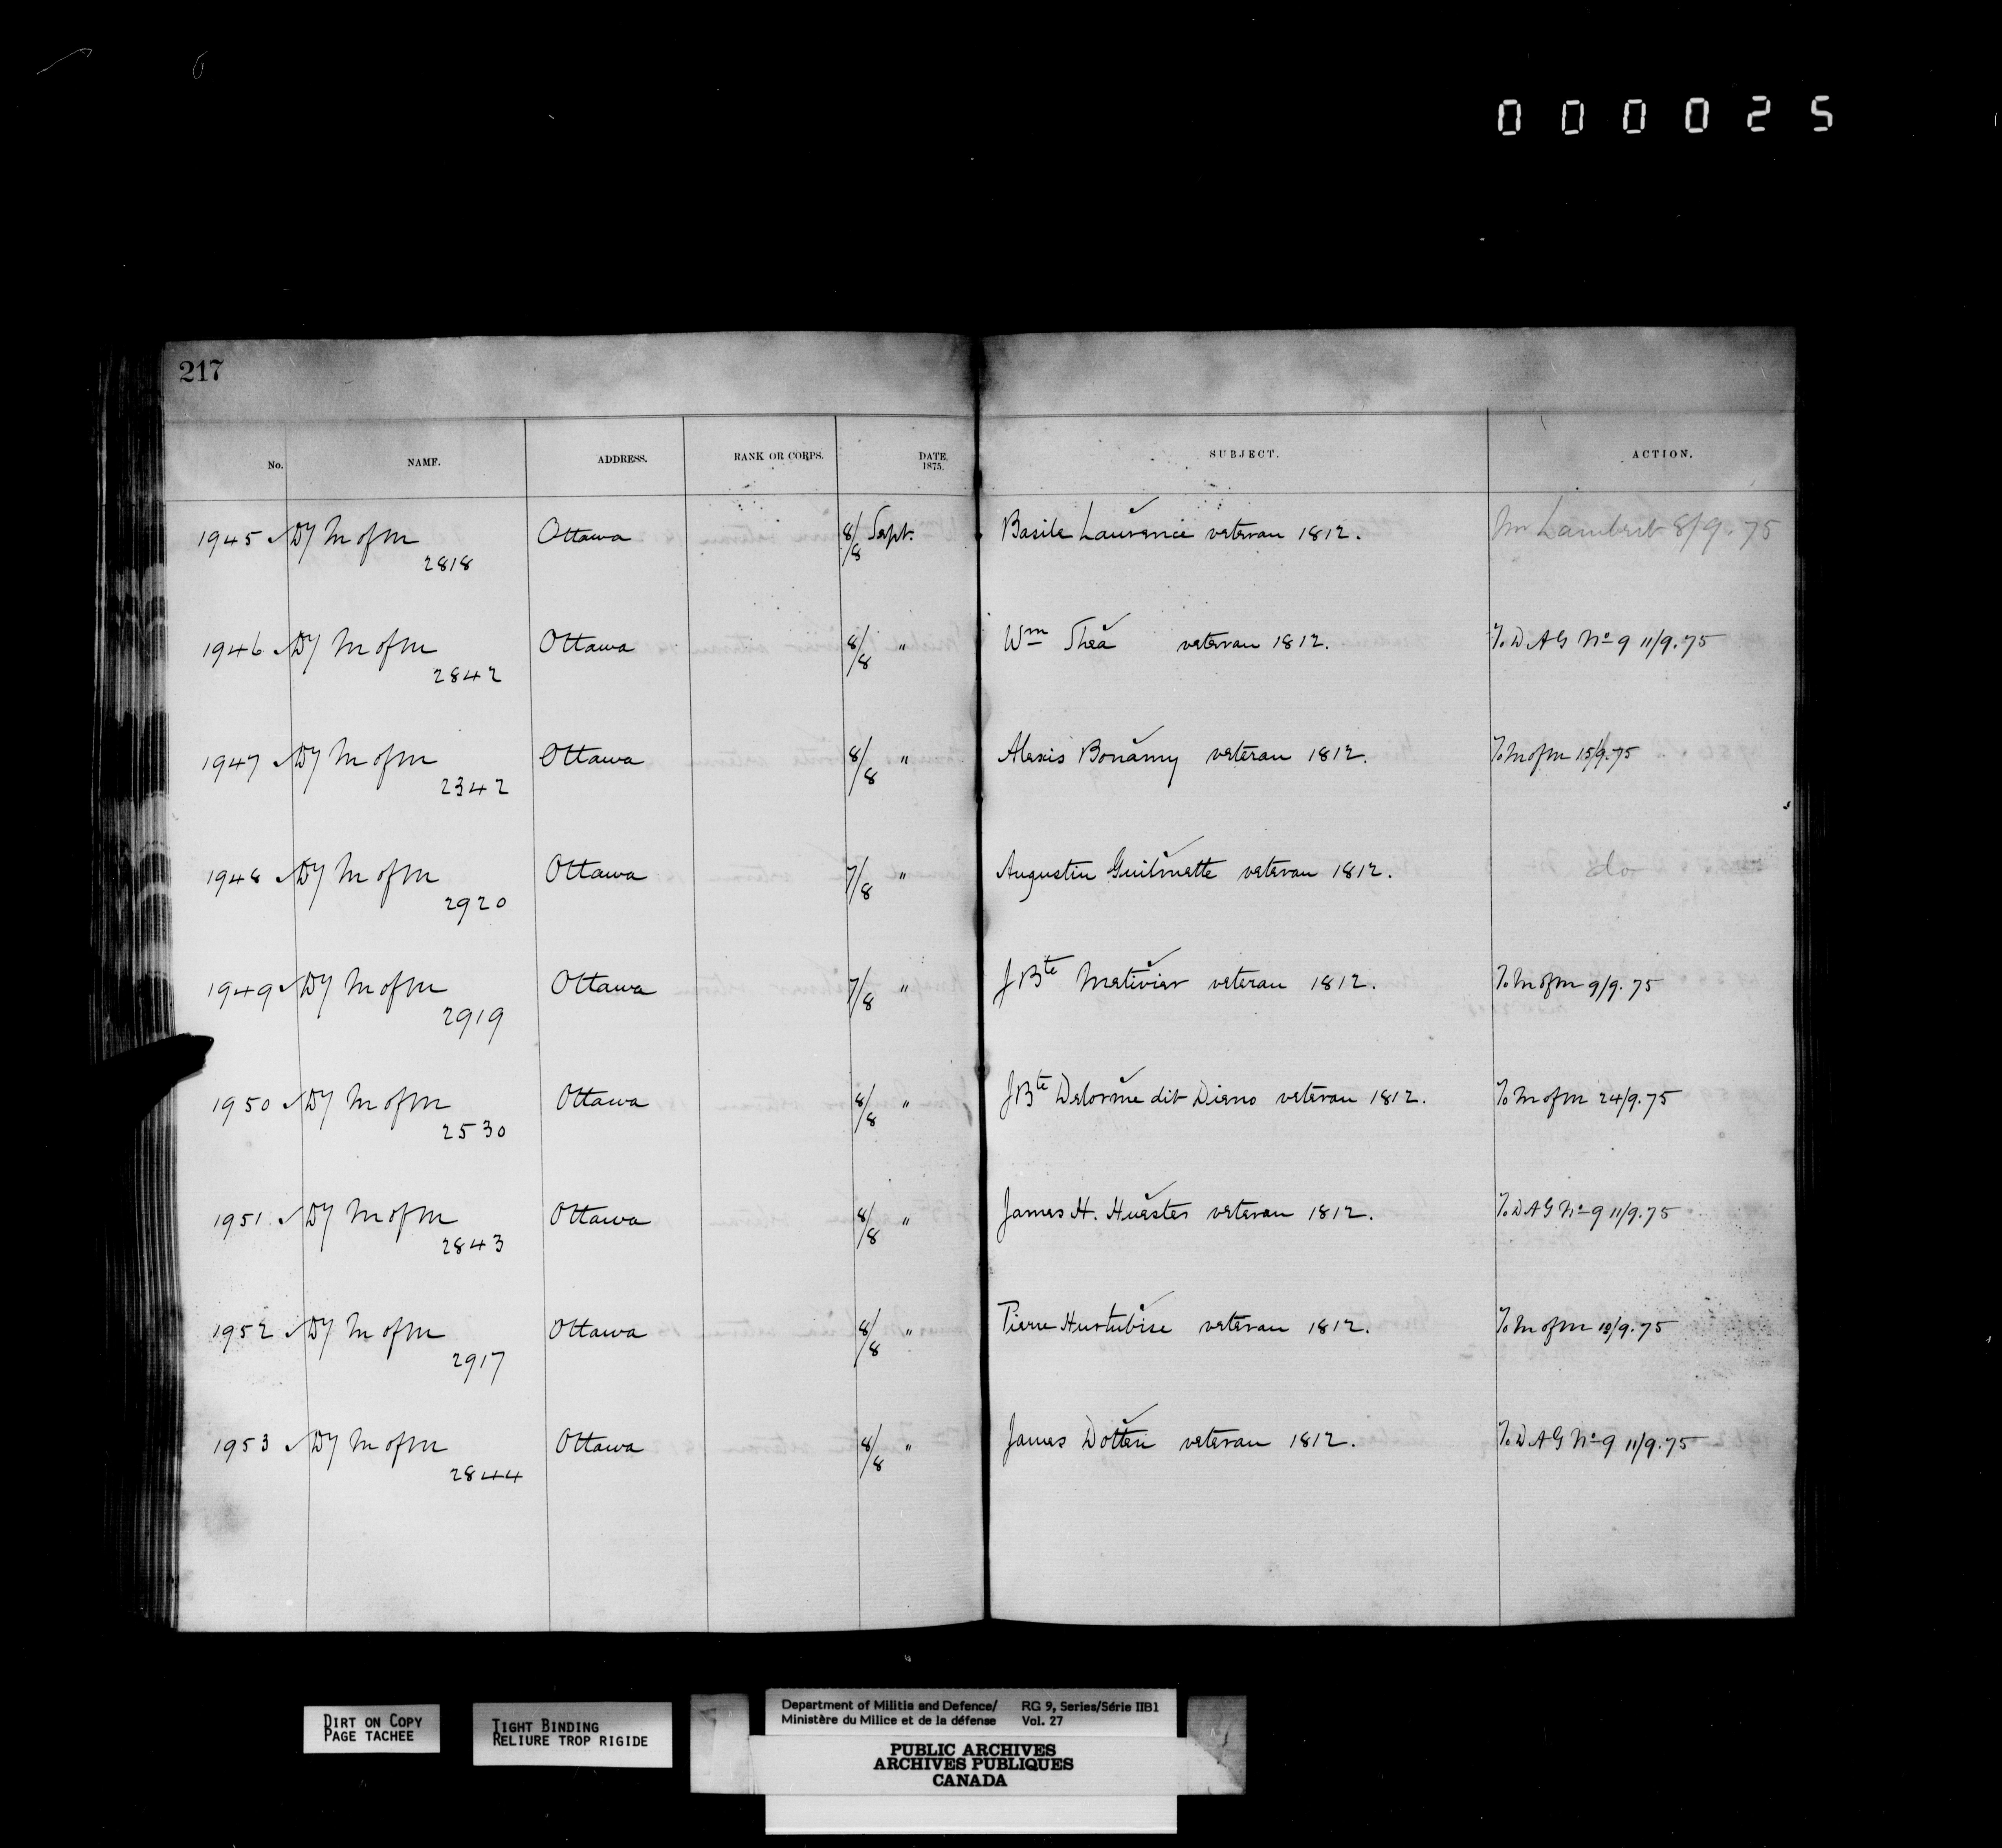 000025
217
No. NAME. ADDRESS. RANK OR CORPS. DATE, 1875. SUBJECT. ACTION.
1945 Dy M of M 2818 Ottawa 8/8 Sept. Basile Laurence veteran 1812. Mr Lambert 8/9.75
1946 Dy M of M 2842 Ottawa 8/8 " Wm Shea veteran 1812. To D A G No 9 11/9.75
1947 Dy M of M 2342 Ottawa 8/8 " Alexis Bonamy veteran 1812. To M of M 15/9.75
1948 Dy M of M 2920 Ottawa 7/8 " Augustin Guilmette veteran 1812. do
1949 Dy M of M 2919 Ottawa 7/8 " J Bte Metivier veteran 1812. To M of M 9/9.75
1950 Dy M of M 2530 Ottawa 8/8 " J Bte Delorme dit veteran 1812. To M of M 24/9.75
1951 Dy M of M 2843 Ottawa 8/8 " James H. veteran 1812. To D A G No 9 11/9.75
1952 Dy M of M 2917 Ottawa 8/8 " Pierre Hurtubise veteran 1812. To M of M 10/9.75
1953 Dy M of M 2844 Ottawa 8/8 " James veteran 1812. To D A G No 9 11/9.75
DIRT ON COPY
PAGE TACHEE
TIGHT BINDING
RELIURE TROP RIGIDE
Department of Militia and Defence/ RG 9, Series/Série IIB1
Ministère du Milice et de la défense Vol. 27
PUBLIC ARCHIVES
ARCHIVES PUBLIQUES
CANADA